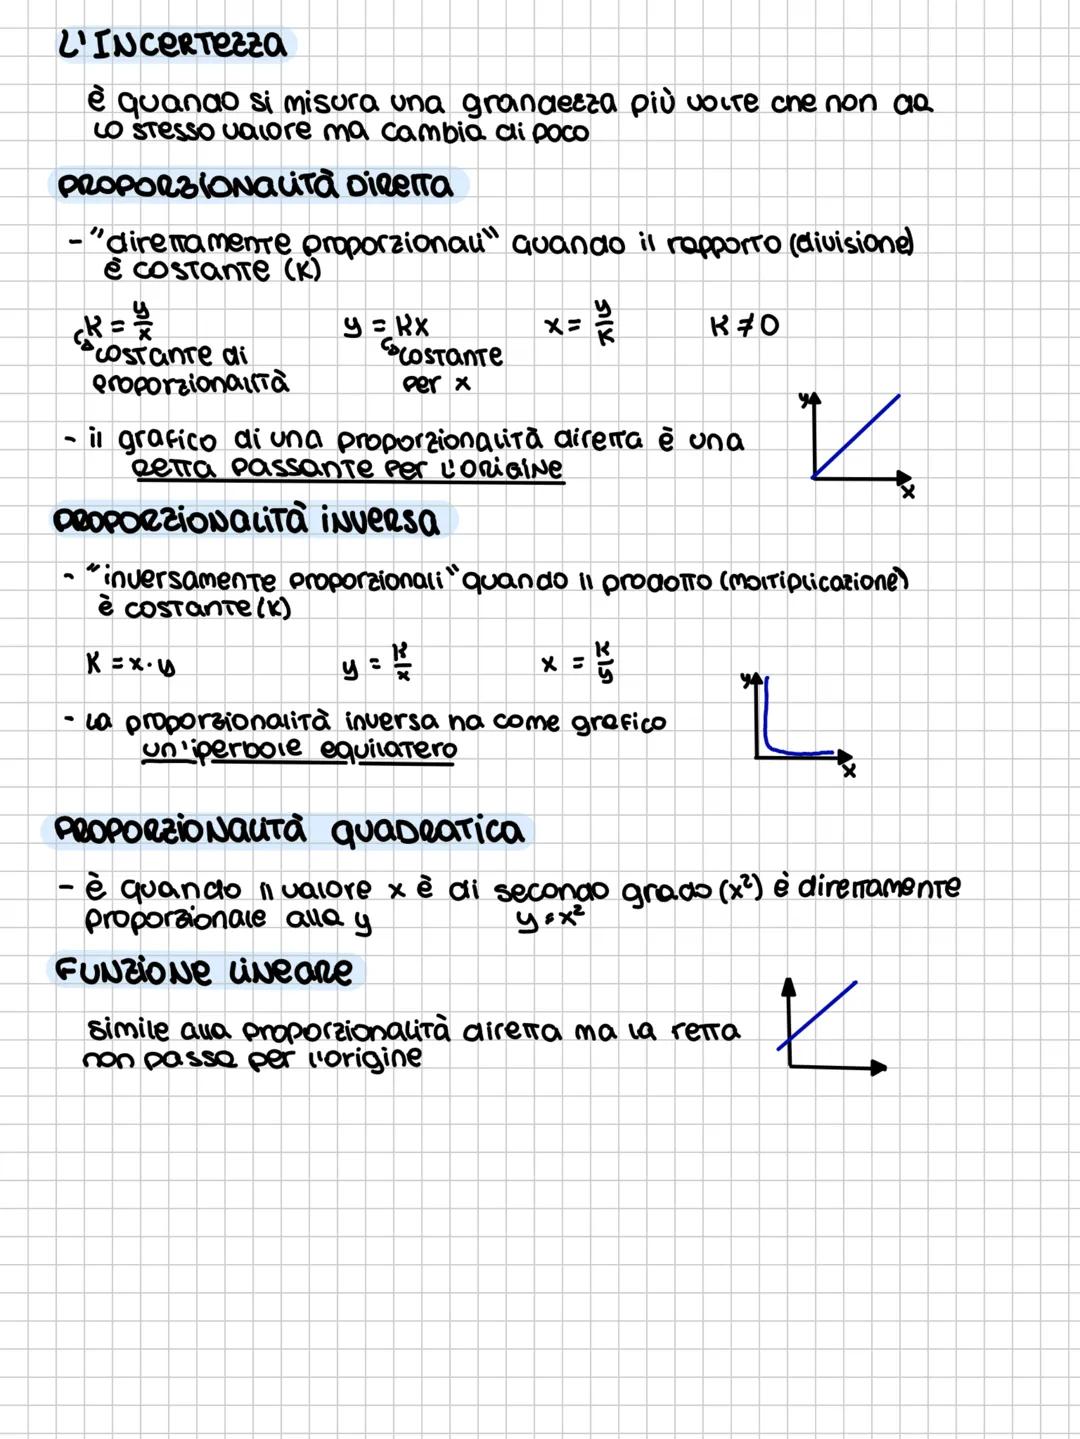 L'INCERTEZZA
è quando si misura una grandezza più volte che non da
lo stesso valore ma cambia di poco
PROPORZIONALITÀ DIRETTA
- "direttamente proporzionali" quando il rapporto (divisione)
è costante (K)
K = y/x
y = Kx
x = y/K
K ≠ 0
↳ costante di
proporzionalità
↳ costante
per x
y
x
- il grafico di una proporzionalità diretta è una
retta passante per l'origine
PROPORZIONALITÀ INVERSA
- "inversamente proporzionali" quando il prodotto (moltiplicazione)
è costante (K)
K = x·y
y = K/x
x = K/y
y
x
- la proporzionalità inversa ha come grafico
un'iperbole equilatero
PROPORZIONALITÀ QUADRATICA
- è quando il valore x è di secondo grado (x²) è direttamente
proporzionale alla y
y = x²
FUNZIONE LINEARE
simile alla proporzionalità diretta ma la retta
non passa per l'origine